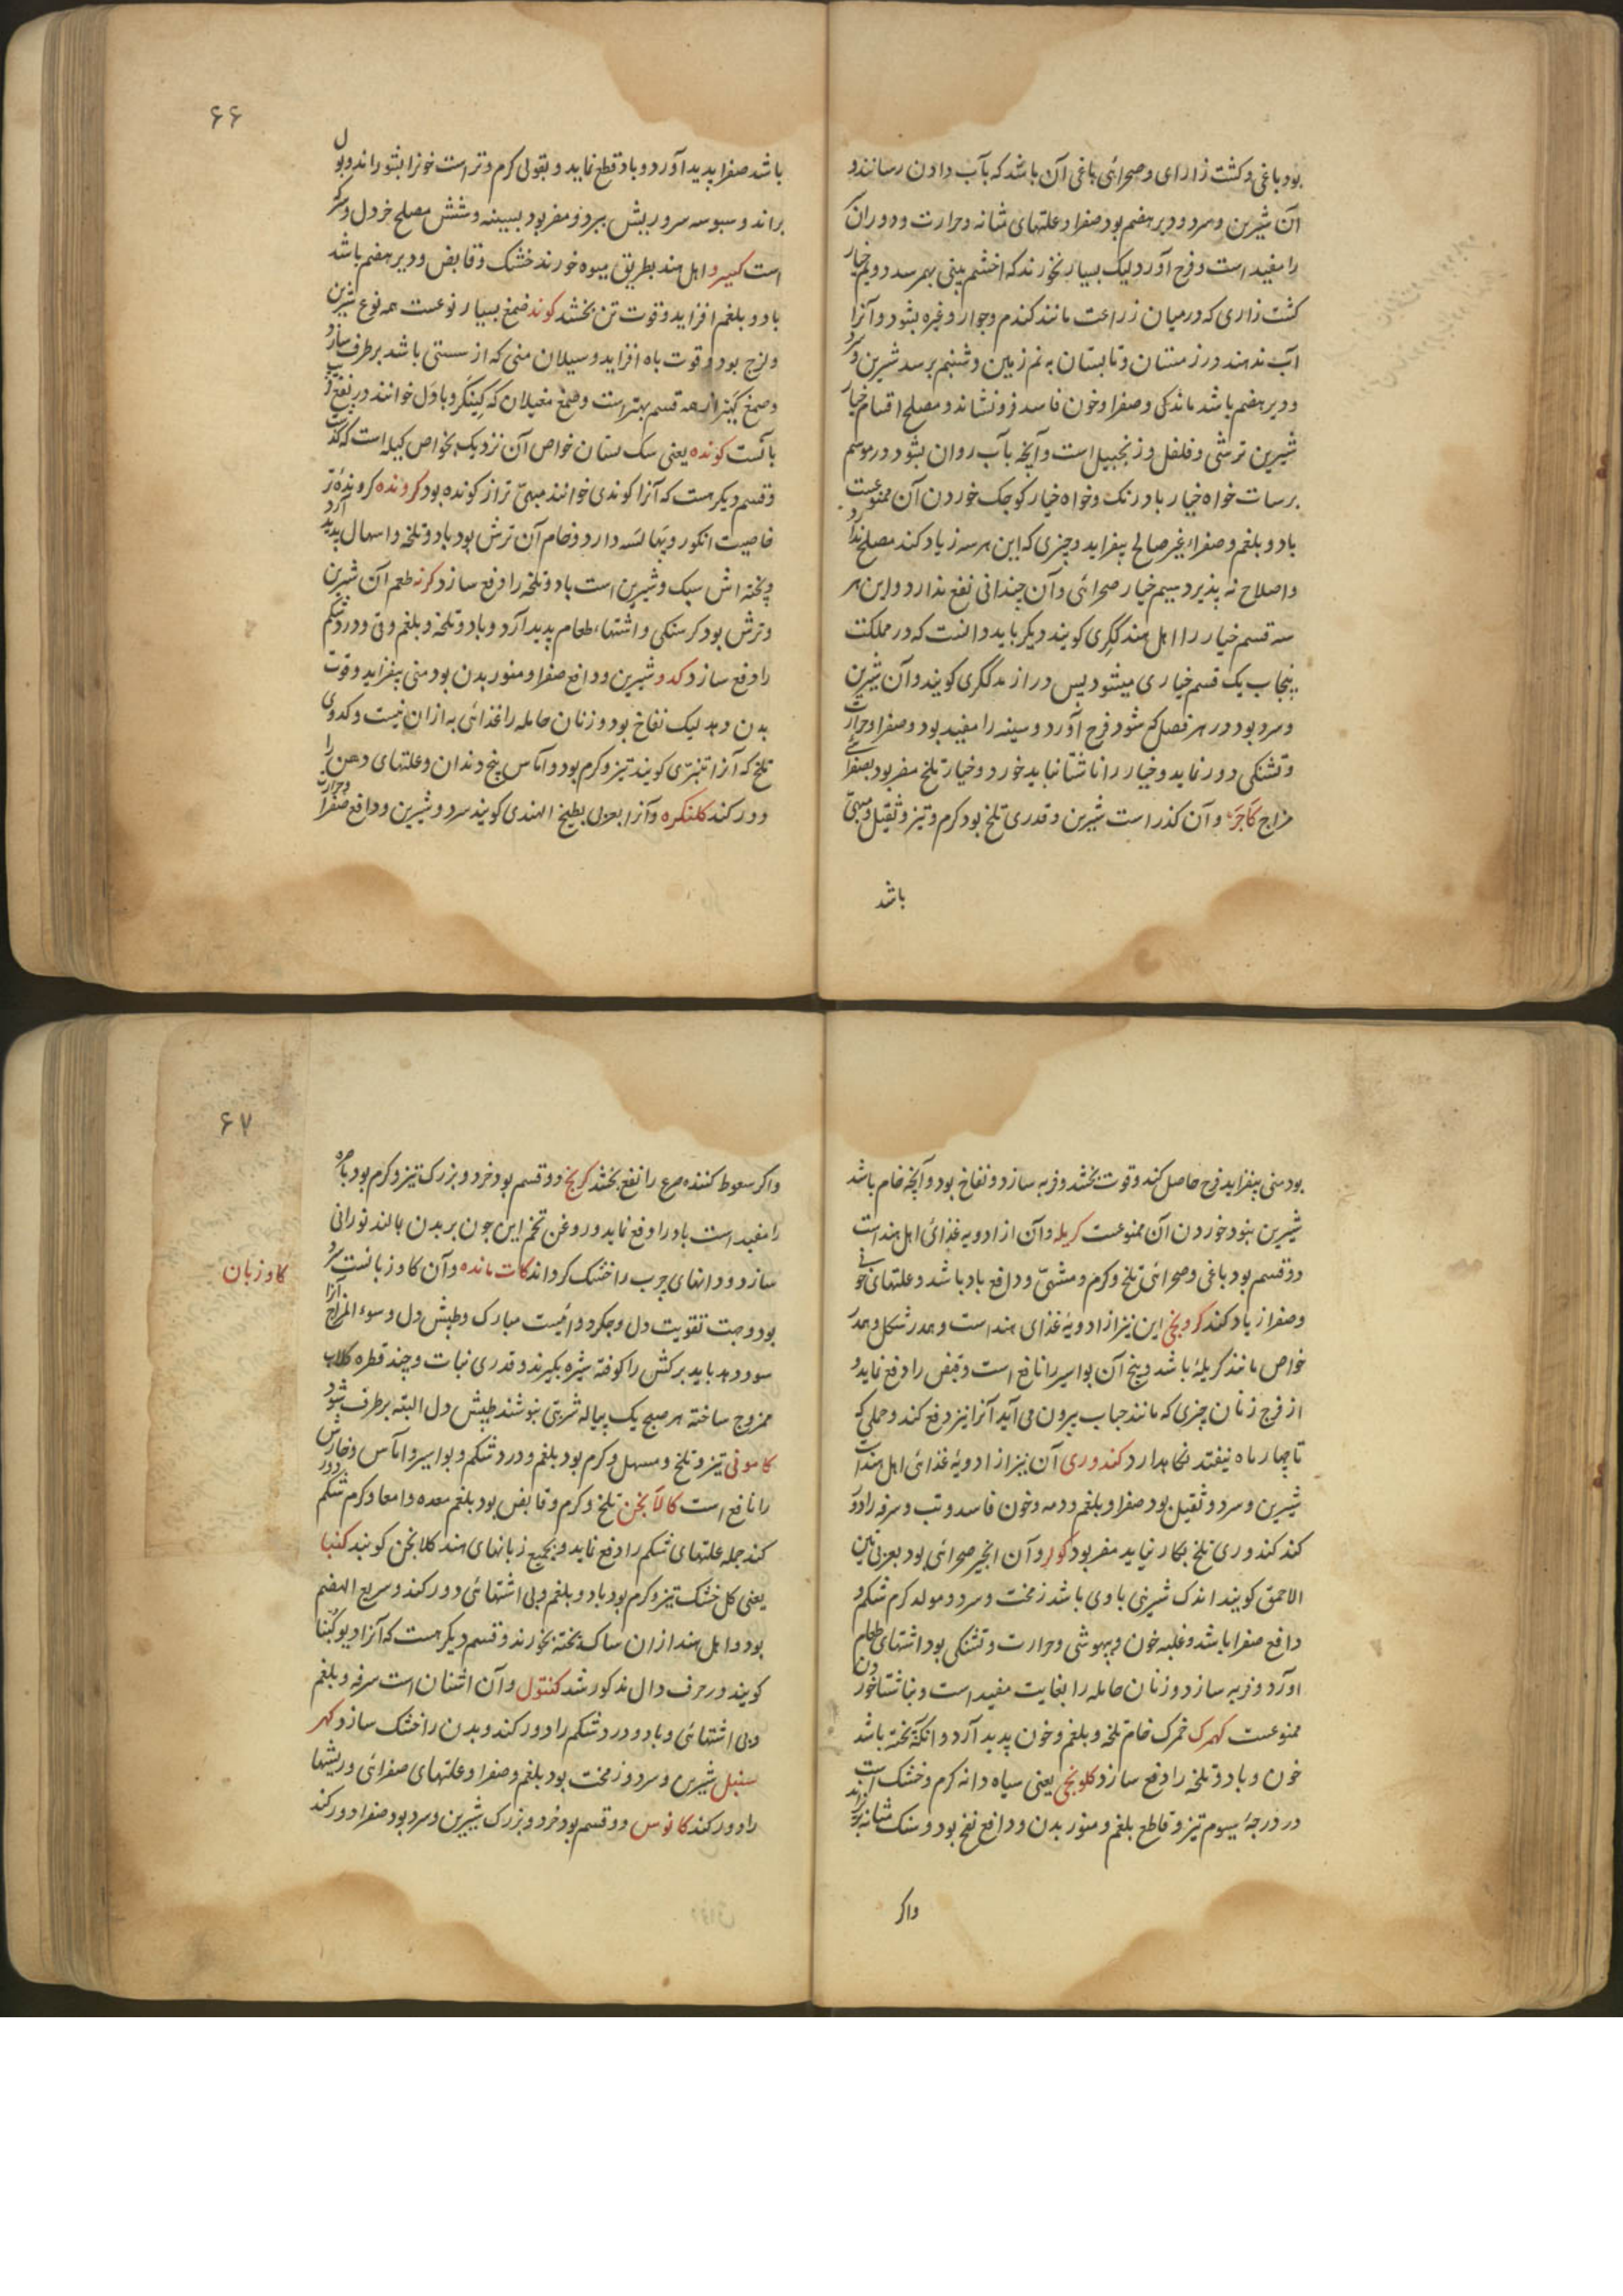 بود باغی و کشت زارای و صحرائی باغی آن باشد که بآب دادن رسانند و
آن شیرین و سرد و دیر هضم بود صفرا و علتهای مثانه و حرارت و دوران
را مفید است و فرح آورد لیک بسیار نخورند که اخشم بینی بهم رسد دویم خیار
کشت زاری که در میان زراعت مانند کندم و جوار و غیره بشود و آنرا
آب ندهند در زمستان و تابستان به نم زمین و شبنم برسد شیرین و سرد
و دیر هضم باشد ماندکی و صفرا و خون فاسد فرو نشاند و مصلح اقسام خیار
شیرین ترشی و فلفل و زنجبیل است و آنچه بآب روان بشود در موسم
برسات خواه خیار بادرنک و خواه خیار کوجک خوردن آن ممنوعست
باد و بلغم و صفراء غیر صالح بیفزاید و چیزی که این هر سه زیاد کند مصلح ندارد
و اصلاح نه پذیرد سیم خیار صحرائی و آن چندانی نفع ندارد و این هر
سه قسم خیار را اهل هند ککری کویند دیکر باید دانست که در مملکت
پنجاب یک قسم خیاری میشود بس دراز که ککری کویند و آن شیرین
و سرد بود در هر فصل که شود فرح آورد و سینه را مفید بود و صفرا و حرارت
و تشنکی دور نماید و خیار را ناشتا نباید خورد و خیار تلخ مضر بود بصفرائی
مزاج کاجر و آن کذر است شیرین و قدری تلخ بود کرم و تیز و ثقیل و مبهی
باشد
۶۶
باشد صفرا پدید آورد و باد قطع نماید و بقولی کرم و تر است خونرا بشوراند و بول
براند و سبوسه سر و ریش ببرد و مضر بود بسینه و شش مصلح خردل و شکر
است کسیرو اهل هند بطریق میوه خورند خشک و قابض و دیر هضم باشد
باد و بلغم افزاید و قوت تن بخشد کوند صمغ بسیار نوعست همه نوع شیرین
و لزج بود و قوت باه افزاید و سیلان منی که از سستی باشد برطرف سازد
و صمغ کتیرا از همه قسم بهتر است و صمغ مغیلان که کینکر و باول خوانند در نفع قریب
بآنست کونده یعنی سک پستان خواص آن نزدیک بخواص کیله است که گذشت
و قسم دیکر هست که آنرا کوندی خوانند مبهی تر از کونده بود کرونده کرونده تر
خاصیت انکور و پهالسه دارد و خام آن ترش بود باد و تلخه و اسهال پدید آرد
و پخته اش سبک و شیرین است باد و تلخه را دفع سازد کرنه طعم آن شیرین
و ترش بود کرسنکی و اشتهاء طعام پدید آرد و باد و تلخه و بلغم و قی و درد شکم
را دفع سازد کدو شیرین و دافع صفرا و منور بدن بود منی بیفزاید و قوت
بدن دهد لیک نفاخ بود و زنان حامله را غذائی به ازان نیست و کدوی
تلخ که آنرا تنبری کویند تیز و کرم بود و آماس بیخ دندان و علتهای دهن را
دور کند کلنکره و آنرا بعربی بطیخ الهندی کویند سرد و شیرین و دافع صفرا و حرارت
بود منی بیفزاید فرح حاصل کند و قوت بخشد و فربه سازد و نفاخ بود و آنچه خام باشد
شیرین نبود خوردن آن ممنوعست کریله و آن از ادویه غذائی اهل هند است
دو قسم بود باغی و صحرائی تلخ و کرم و مشتهی و دافع باد باشد و علتهای خونی
و صفرا زیاد کند کرونجی این نیز از ادویه غذای هند است و هم در شکل و هم در
خواص مانند کریله باشد و بیخ آن بواسیر را نافع است و قبض را دفع نماید و
از فرج زنان چیزی که مانند حباب بیرون می آید آنرا نیز دفع کند و حملی که
تا چهار ماه نیفتد نکاهدارد کندوری آن نیز از ادویه غذائی اهل هند است
شیرین و سرد و ثقیل بود صفرا و بلغم و دمه و خون فاسد و تب و سرفه را دور
کند کندوری تلخ بکار نیاید مضر بود کولر و آن انجیر صحرائی بود بعربی تین
الاحمق کویند اندک شیرینی با وی باشد زمخت و سرد و مولد کرم شکم و
دافع صفرا باشد و غلبه خون و بیهوشی و حرارت و تشنکی بود اشتهای طعام
آورد و فربه سازد و زنان حامله را بغایت مفید است و بناشتا خوردن
ممنوعست کهمرک خمرک خام تلخه و بلغم و خون پدید آرد و آنکه پخته باشد
خون و باد و تلخه را دفع سازد کلونجی یعنی سیاه دانه کرم و خشک است
در درجه سیوم تیز و قاطع بلغم و منور بدن و دافع نفخ بود و سنک مثانه بریزاند
واکر
۶۷
واکر سعوط کنند صرع را نفع بخشد کرنج دو قسم بود خرد و بزرک تیز و کرم بود باصره
را مفید است باد را دفع نماید و روغن تخم این چون بر بدن بالند نورانی
سازد و دانهای چرب را خشک کرداند کات مانده و آن کاوزبانست سرد
بود و جهت تقویت دل و جکر دوائیست مبارک و طپش دل و سوء المزاج آنرا
سود دهد باید برکش را کوفته شیره بکیرند و قدری نبات و چند قطره کلاب
ممزوج ساخته هر صبح یک پیاله شربتی بنوشند طپش دل البته برطرف شود
کامونی تیز و تلخ و مسهل و کرم بود بلغم و درد شکم و بواسیر و آماس و خارش
را نافع است کالابخن تلخ و کرم و قابض بود بلغم معده و امعا و کرم شکم دور
کند جمله علتهای شکم را دفع نماید و بجمیع زبانهای هند کلابخن کویند کنبا
یعنی کل خشک تیز و کرم بود باد و بلغم و بی اشتهائی دور کند و سریع الهضم
بود و اهل هند ازان ساک پخته بخورند و قسم دیکر هست که آنرا دیوکنبا
کویند در حرف دال مذکور شد کنتول و آن اشنان است سرفه و بلغم
و بی اشتهائی و باد و درد شکم را دور کند و بدن را خشک سازد کهر
سنبل شیرین و سرد و زمخت بود بلغم و صفرا و علتهای صفرائی و ریشها
را دور کند کانوس دو قسم بود خرد و بزرک شیرین و سرد بود صفرا دور کند
کاوزبان